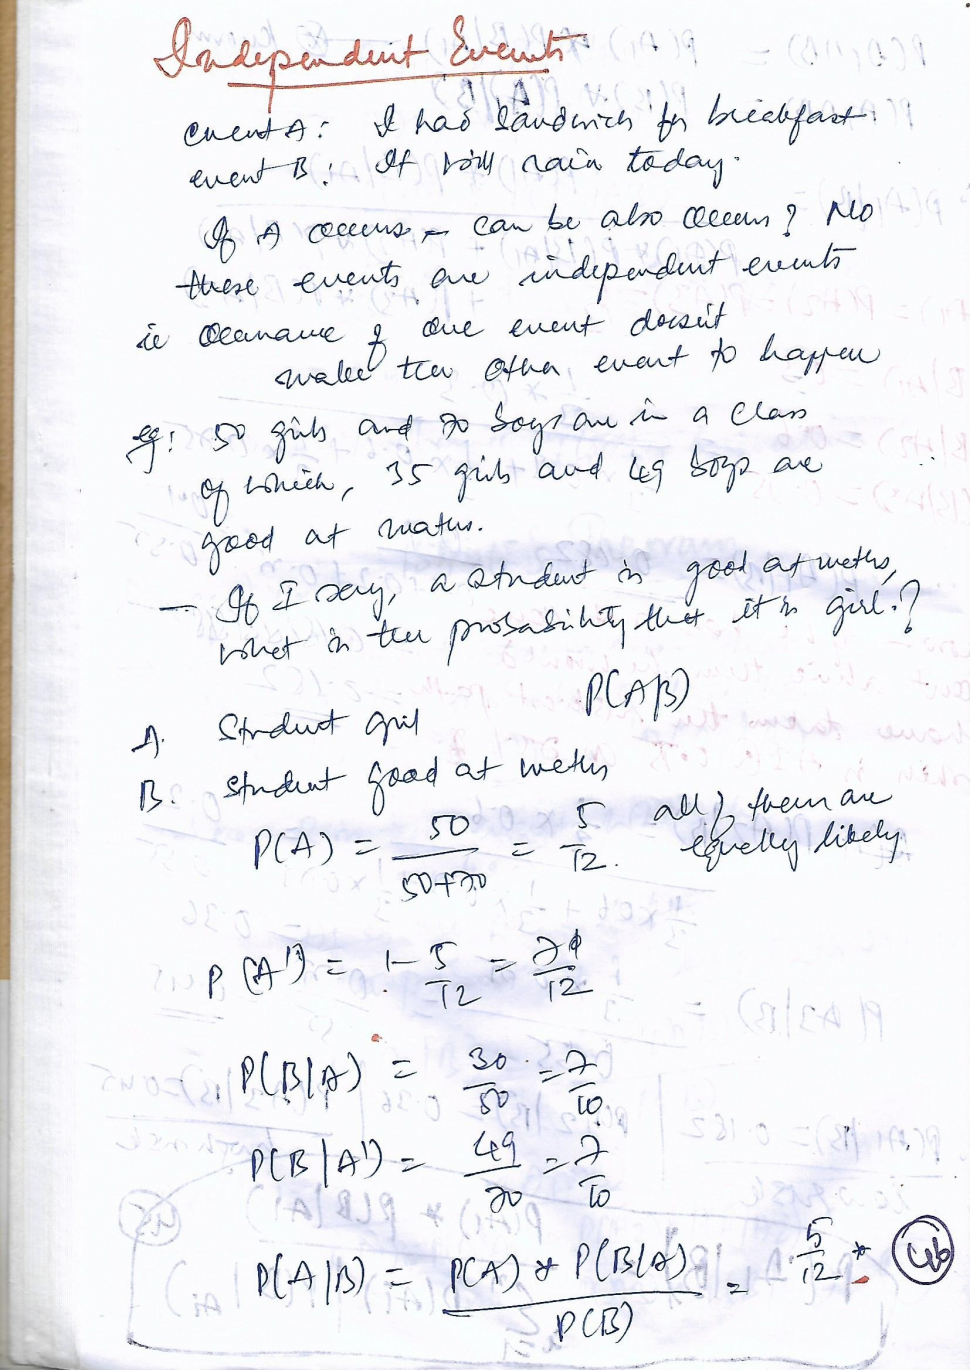 Independent Events
event A: I had Sandwich for breakfast
event B: It will rain today.
If A occurs, can be also occurs? No
these events are independent events
ie occurance of one event doesn't
make the other event to happen
eg: 50 girls and 70 boys are in a class
of which, 35 girls and 49 boys are
good at maths.
— If I say, a student is good at maths,
what is the probability that it is girl.?
P(A|B)
A. Student girl
B. Student good at maths
P(A) = 50/(50+70) = 5/12. all of them are equally likely
P(A') = 1 - 5/12 = 7/12
P(B|A) = 30/50 = 7/10
P(B|A') = 49/70 = 7/10
P(A|B) = P(A) * P(B|A) / P(B) = 5/12 *
46